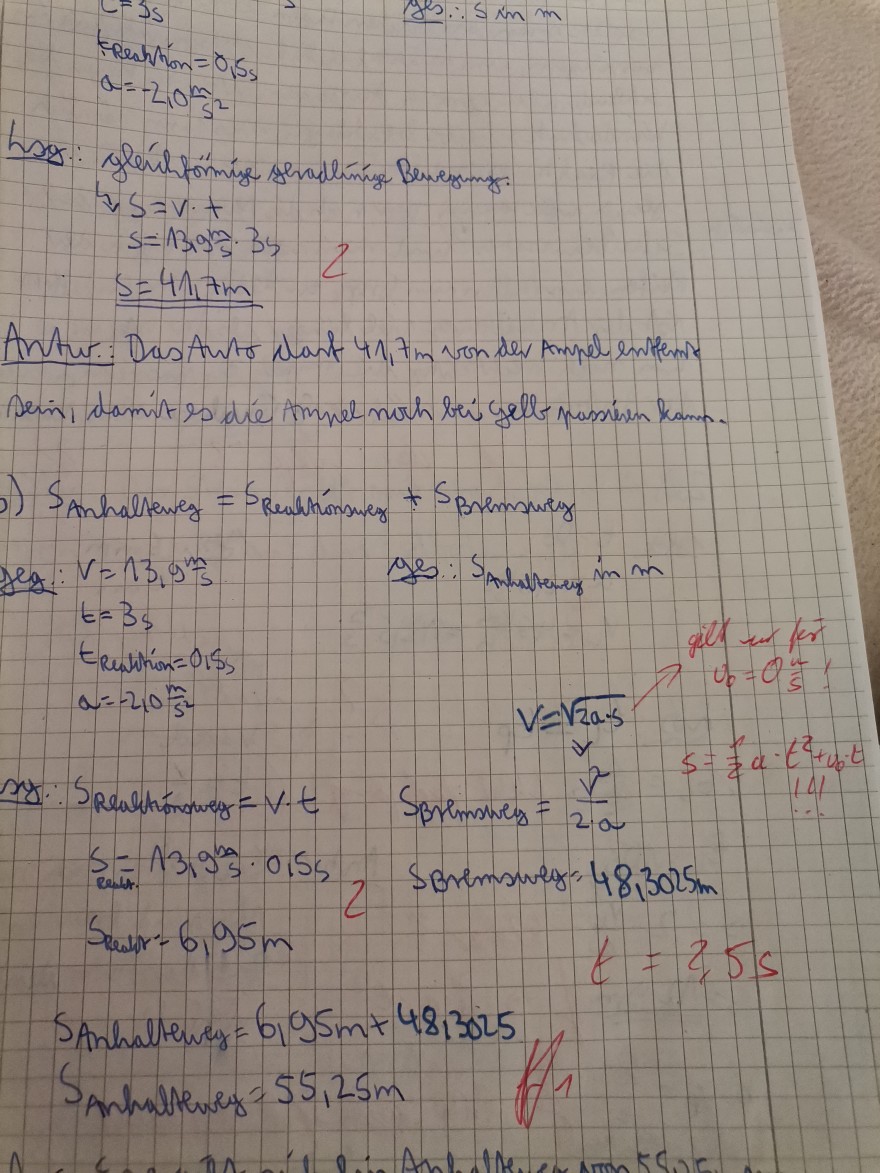 t=3s
ges.: s in m
tReaktion=0,5s
a=-2,0 m/s²
Lsg.: gleichförmige geradlinige Bewegung.
↳ s=v·t
s=13,9 m/s · 3s
2
s=41,7m
Antw.: Das Auto darf 41,7m von der Ampel entfernt
sein, damit es die Ampel noch bei gelb passieren kann.
b) SAnhalteweg = SReaktionsweg + SBremsweg
geg.: v=13,9 m/s
ges.: SAnhalteweg in m
t=3s
tReaktion=0,5s
a=-2,0 m/s²
gilt nur für
v₀=0 m/s !
v=√2a·s
s=½a·t²+v₀·t
!!!
Lsg.: SReaktionsweg=v·t
SBremsweg= v²/2·a
SReakt.=13,9 m/s · 0,5s
SBremsweg=48,3025m
2
SReakt=6,95m
t = 2,5s
SAnhalteweg=6,95m+48,3025
1
SAnhalteweg=55,25m